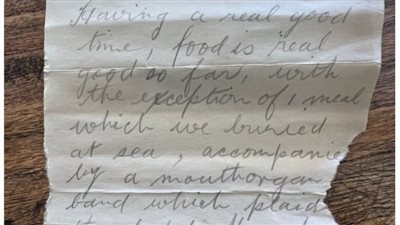 Having a real good
time, food is real
good so far, with
the exception of 1 meal
which we buried
at sea, accompanie
by a mouthorgan
band which plaid